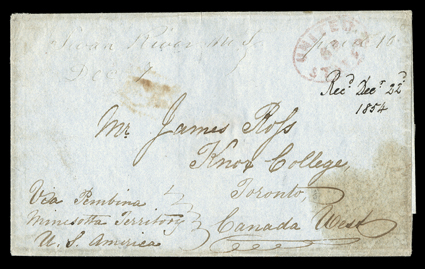 Swan River
Dec 7
UNITED STATES
Recd Decr 22d
1854
Mr James Ross
Knox College,
Toronto,
Canada West
Via Pembina
Minesotta Territory
U. S. America